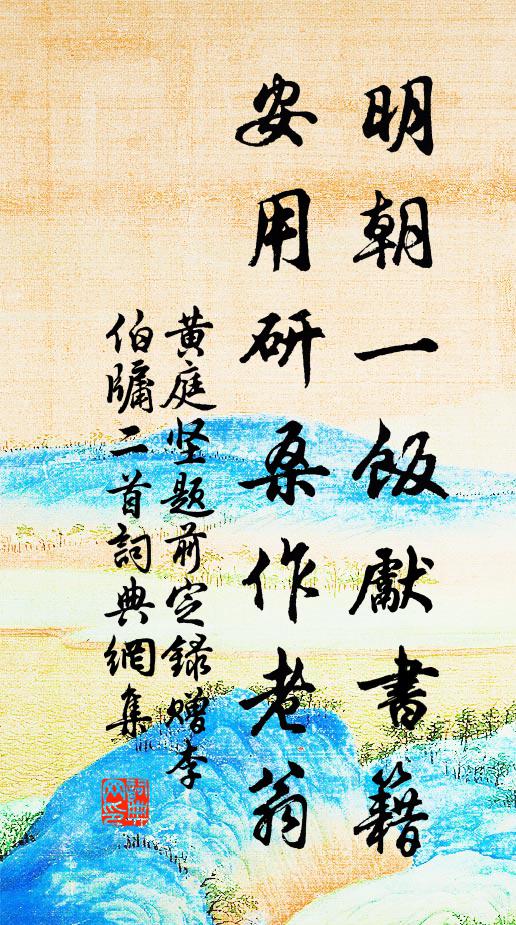 明朝一飯獻書籍
安用研桑作老翁
黄庭坚題前定録贈李
伯牖二首詞典網集